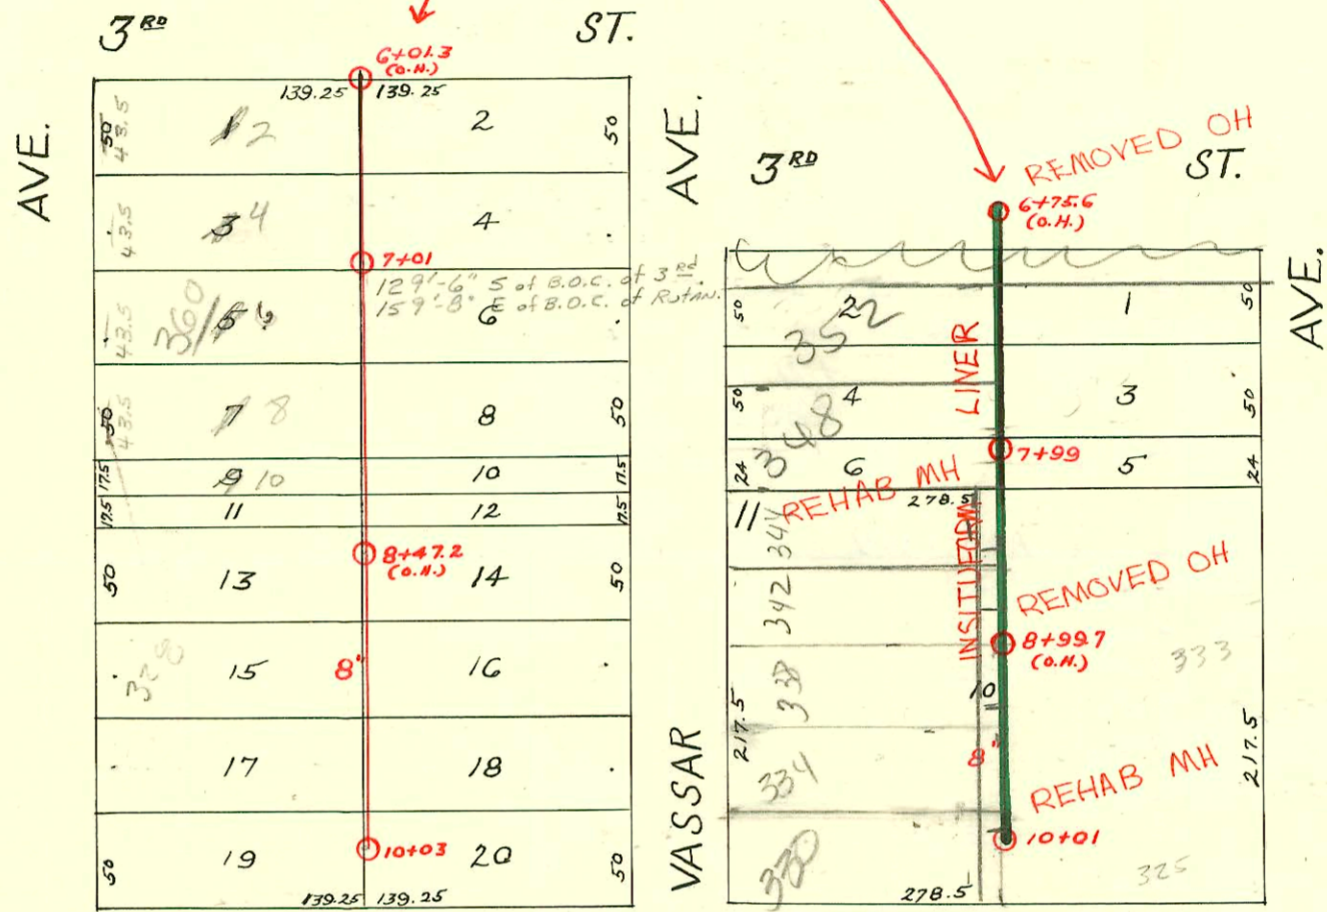 3RD ST.
AVE.
6+01.3
(O.H.)
139.25 139.25
50 43.5 1 2 2 50
43.5 3 4 4
7+01
129'-6" S of B.O.C. of 3rd.
159'-8" E of B.O.C. of Rutan.
43.5 360 5 6 6
50 43.5 7 8 8 50
17.5 9 10 10 17.5
17.5 11 12 17.5
8+47.2
(O.H.)
50 13 14 50
328 15 8" 16
17 18
50 19 10+03 20 50
139.25 139.25
AVE.
VASSAR
3RD ST.
AVE.
REMOVED OH
6+75.6
(O.H.)
50 2 352 1 50
LINER
50 4 348 3 50
7+99
24 6 5 24
REHAB MH
278.5
11 344
INSITUFORM
342
REMOVED OH
8+99.7
(O.H.)
333
338 10
217.5 217.5
8"
334
REHAB MH
10+01
330 325
278.5